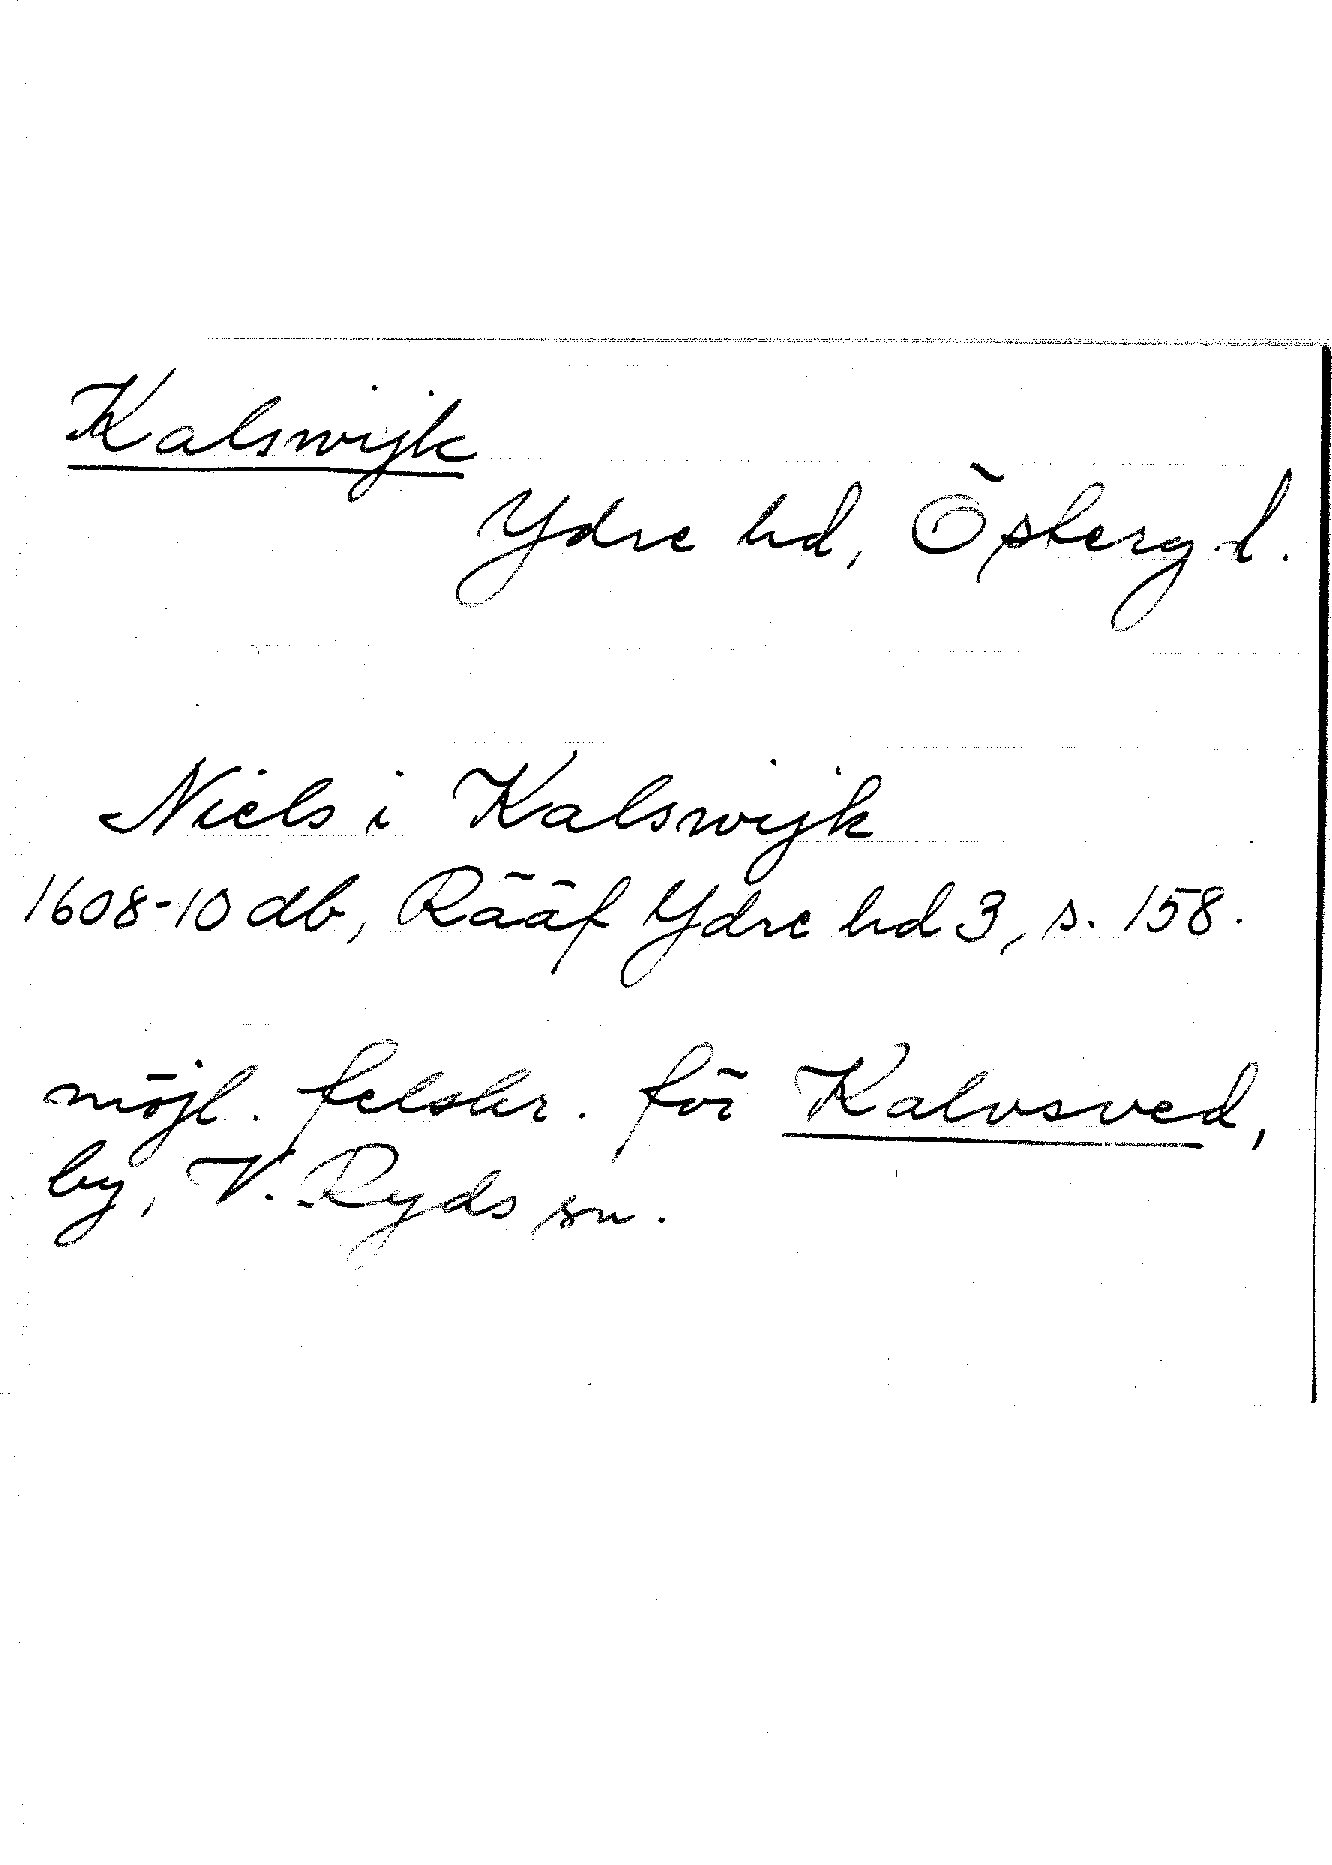 Kalswijk
Ydre hd, Östergl.
Niels i Kalswijk
1608-10 db, Rääf Ydre hd 3, s. 158.
möjl. felskr. för Kalvsved,
by, V. Ryds sn.